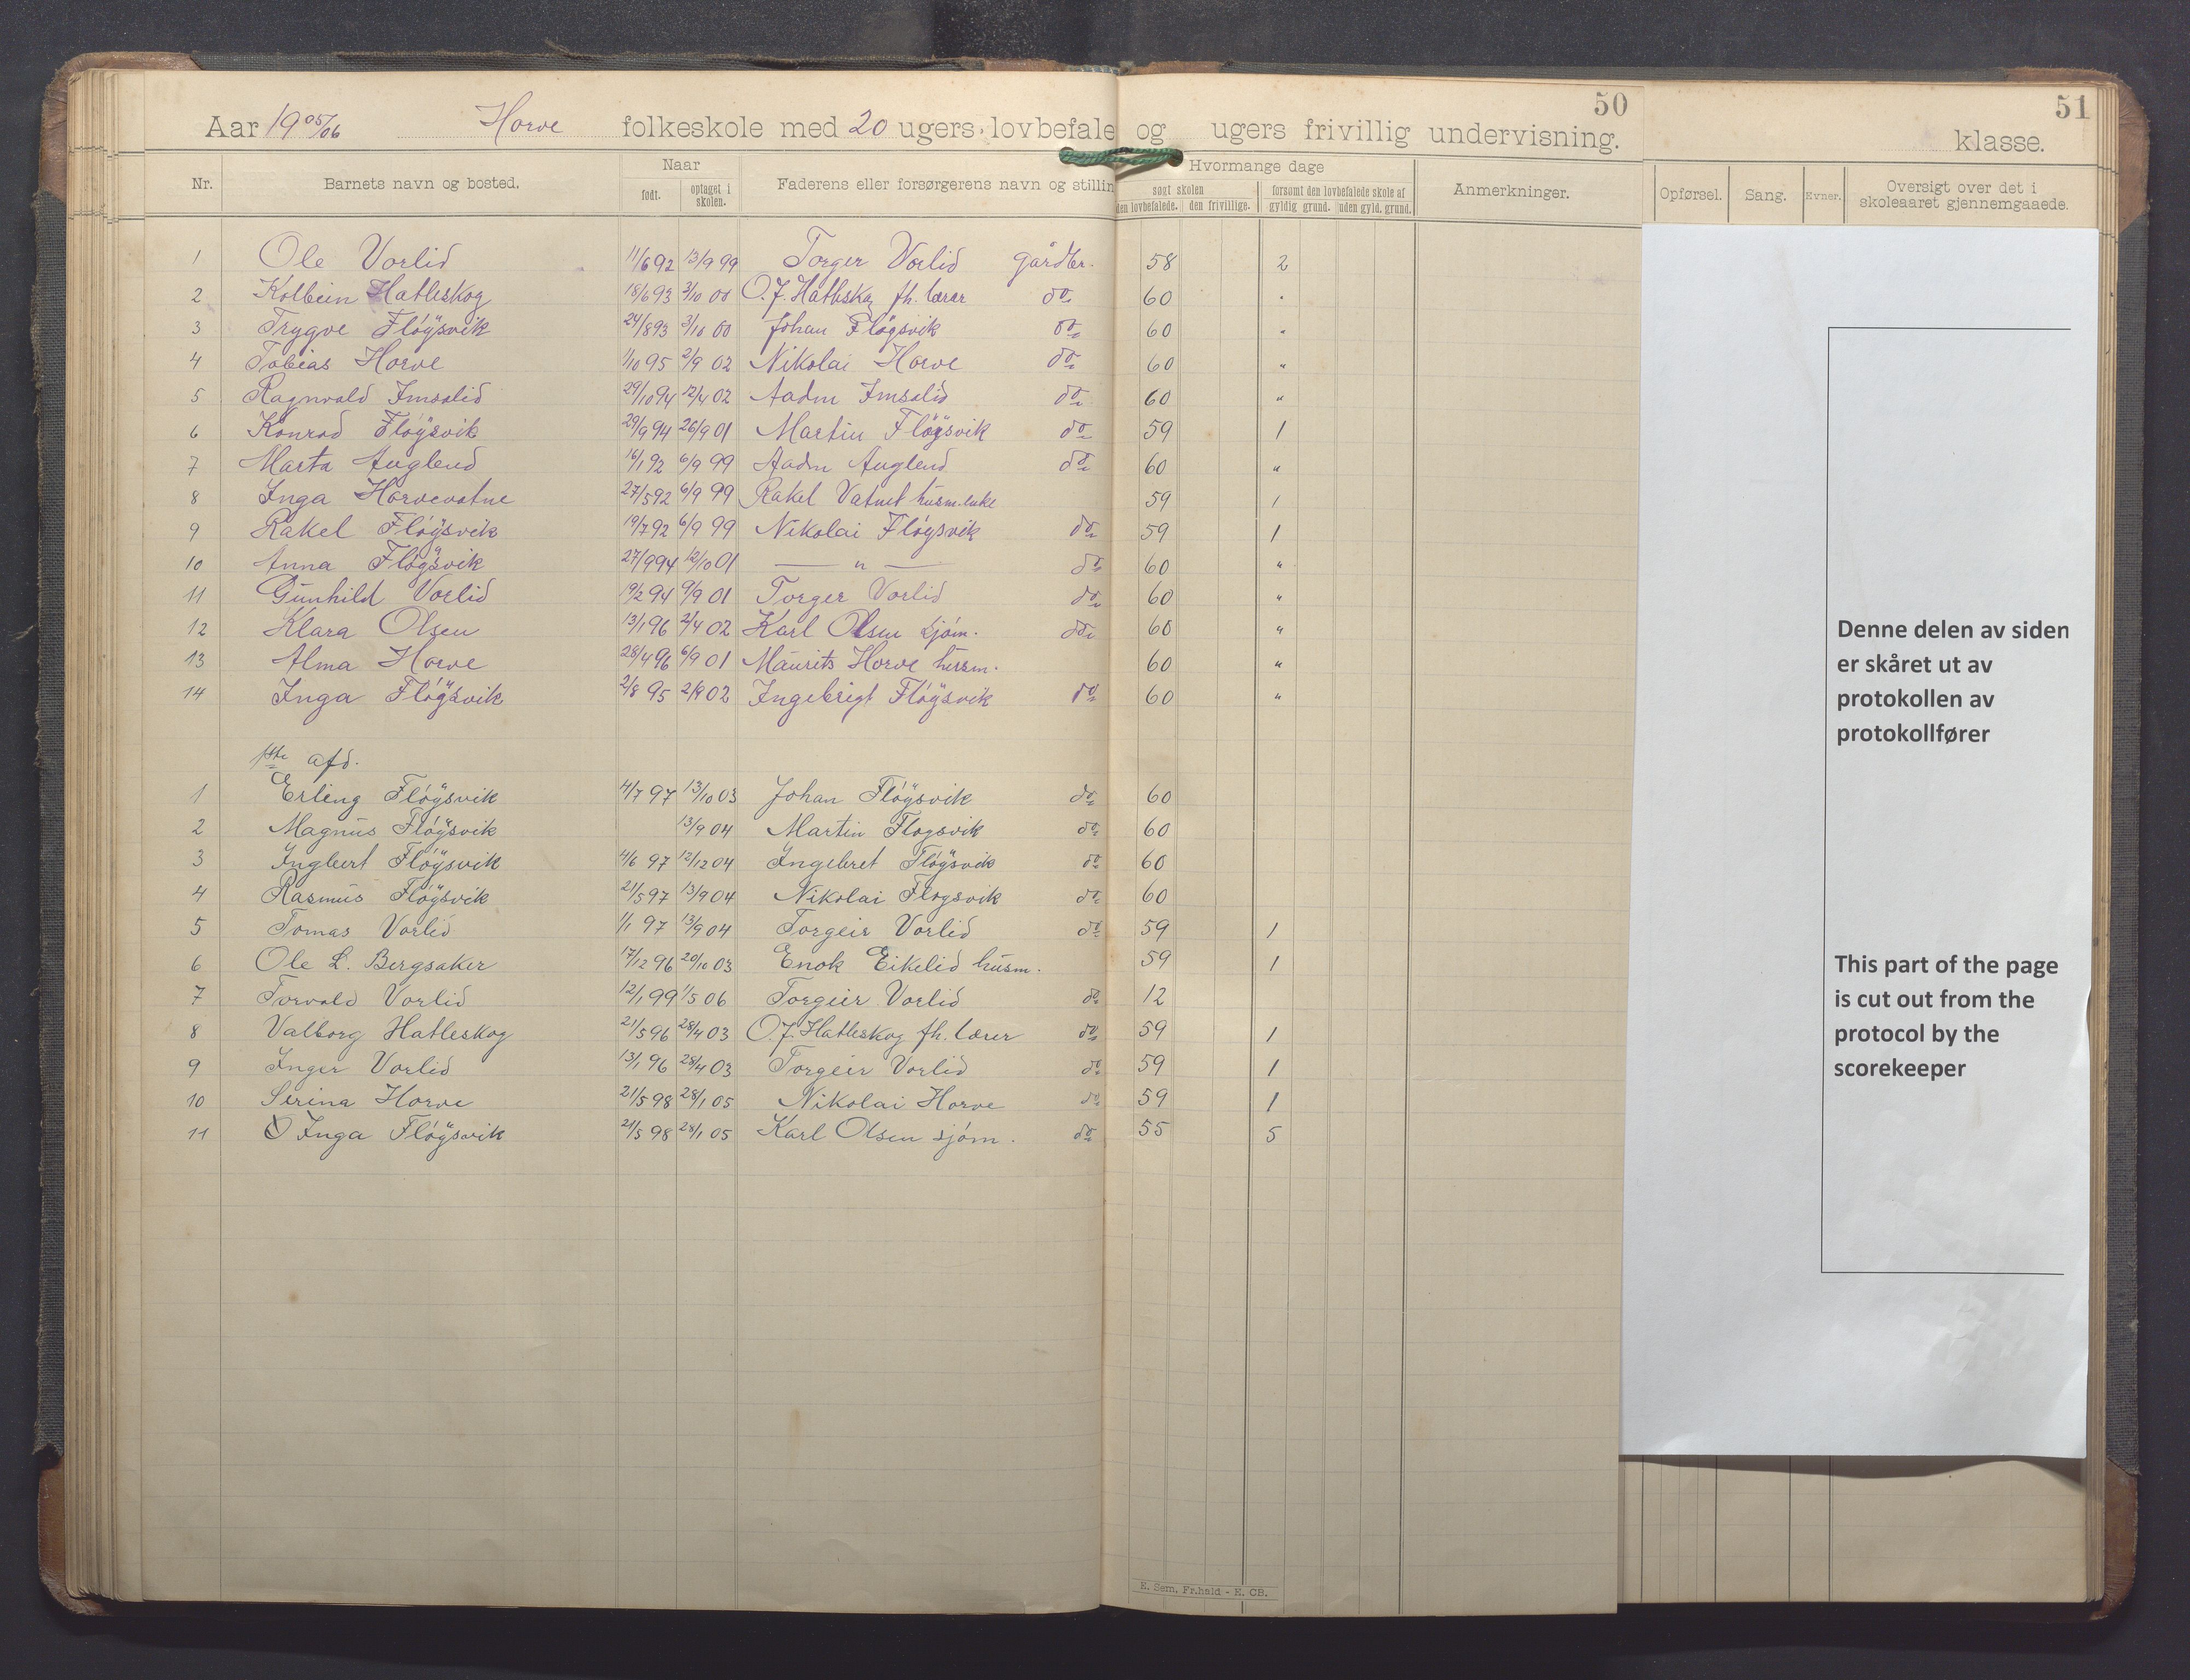 50
51
Aar 1905/06 Horve folkeskole med 20 ugers lovbefale og ugers frivillig undervisning. klasse.
Nr. Barnets navn og bosted. Naar født. optaget i skolen. Faderens eller forsørgerens navn og stillin Hvormange dage søgt skolen den lovbefalede. den frivillige. forsømt den lovbefalede skole af gyldig grund. uden gyld. grund. Anmerkninger. Opførsel. Sang. Evner. Oversigt over det i skoleaaret gjennemgaaede.
1 Ole Vorlid 11/6 92 13/9 99 Torger Vorlid gårdbr. 58 2
2 Kolbein Hatleskog 18/6 93 3/10 00 O. J. Hatleskog fh. lærer do 60 "
3 Trygve Fløÿsvik 24/8 93 3/10 00 Johan Fløgsvik do 60 "
4 Tobias Horve 1/10 95 2/9 02 Nikolai Horve do 60 "
5 Ragnvald Imsalid 29/10 94 12/4 02 Aadm Imsalid do 60 "
6 Konrad Fløÿsvik 29/9 94 26/9 01 Martin Fløÿsvik do 59 1
7 Marta Auglend 16/1 92 6/9 99 Aadm Auglend do 60 "
8 Inga Horvevatne 27/5 92 6/9 99 Rakel Vatnet husm.enke 59 1
9 Rakel Fløÿsvik 19/7 92 6/9 99 Nikolai Fløÿsvik do 59 1
10 Anna Fløÿsvik 27/9 94 12/10 01 — " — do 60 "
11 Gunhild Vorlid 19/2 94 9/9 01 Torger Vorlid do 60 "
12 Klara Olsen 13/1 96 2/4 02 Karl Olsen sjøm. do 60 "
13 Alma Horve 28/4 96 6/9 01 Maurits Horve husm. 60 "
14 Inga Fløÿsvik 2/8 95 2/9 02 Ingebrigt Fløÿsvik do 60 "
1ste afd.
1 Erling Fløÿsvik 4/7 97 13/10 03 Johan Fløÿsvik do 60
2 Magnus Fløÿsvik 13/9 04 Martin Fløgsvik do 60
3 Ingbert Fløÿsvik 4/6 97 12/12 04 Ingebret Fløÿsvik do 60
4 Rasmus Fløÿsvik 21/5 97 13/9 04 Nikolai Fløgsvik do 60
5 Tomas Vorlid 1/1 97 13/9 04 Torgeir Vorlid do 59 1
6 Ole L. Bergsaker 17/12 96 20/10 03 Enok Eikelid husm. 59 1
7 Torvald Vorlid 12/1 99 1/5 06 Torgeir Vorlid do 12
8 Valborg Hatleskog 21/5 96 28/4 03 O. J. Hatleskog fh. lærer do 59 1
9 Inger Vorlid 13/1 96 28/4 03 Torgeir Vorlid do 59 1
10 Serina Horve 21/5 98 28/1 05 Nikolai Horve do 59 1
11 Inga Fløÿsvik 21/5 98 28/1 05 Karl Olsen sjøm. do 55 5
Denne delen av siden
er skåret ut av
protokollen av
protokollfører
This part of the page
is cut out from the
protocol by the
scorekeeper
E. Sem, Fr.hald - E. CB.